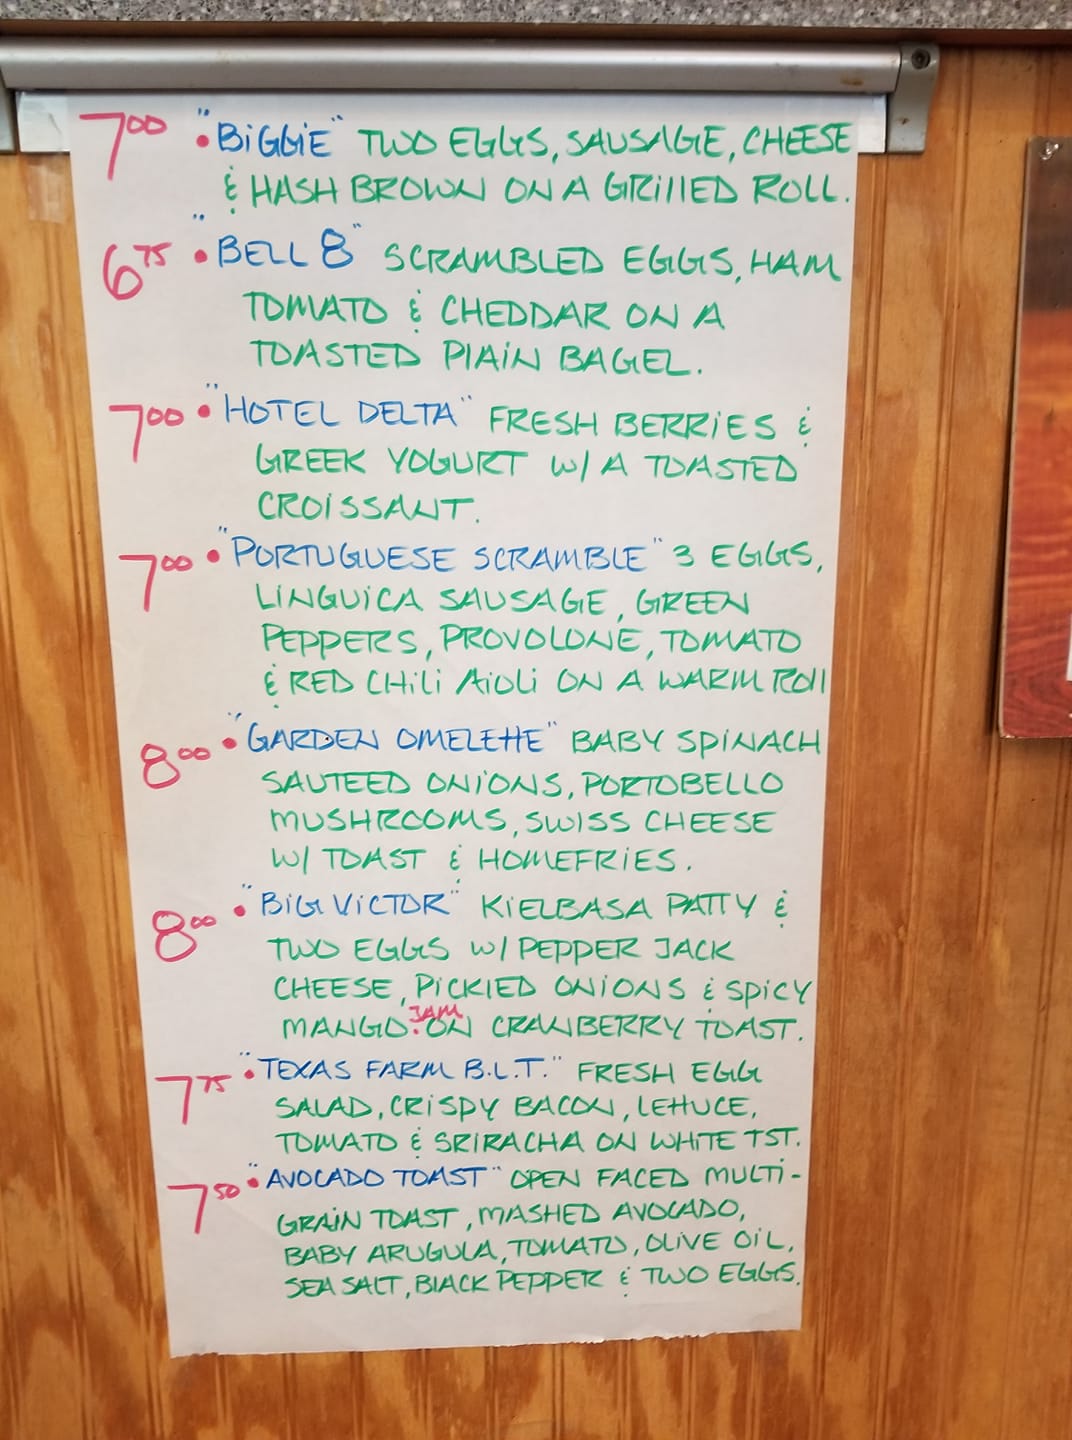 7.00 • "BIGGIE" TWO EGGS, SAUSAGE, CHEESE
& HASH BROWN ON A GRILLED ROLL.
6.75 • "BELL 8" SCRAMBLED EGGS, HAM
TOMATO & CHEDDAR ON A
TOASTED PLAIN BAGEL.
7.00 • "HOTEL DELTA" FRESH BERRIES &
GREEK YOGURT W/ A TOASTED
CROISSANT.
7.00 • "PORTUGUESE SCRAMBLE" 3 EGGS,
LINGUICA SAUSAGE, GREEN
PEPPERS, PROVOLONE, TOMATO
& RED CHILI AIOLI ON A WARM ROLL
8.00 • "GARDEN OMELETTE" BABY SPINACH
SAUTEED ONIONS, PORTOBELLO
MUSHROOMS, SWISS CHEESE
W/ TOAST & HOMEFRIES.
8.00 • "BIG VICTOR" KIELBASA PATTY &
TWO EGGS W/ PEPPER JACK
CHEESE, PICKLED ONIONS & SPICY
MANGO JAM ON CRANBERRY TOAST.
7.75 • "TEXAS FARM B.L.T." FRESH EGG
SALAD, CRISPY BACON, LETTUCE,
TOMATO & SRIRACHA ON WHITE TST.
7.50 • "AVOCADO TOAST" OPEN FACED MULTI-
GRAIN TOAST, MASHED AVOCADO,
BABY ARUGULA, TOMATO, OLIVE OIL,
SEA SALT, BLACK PEPPER & TWO EGGS.